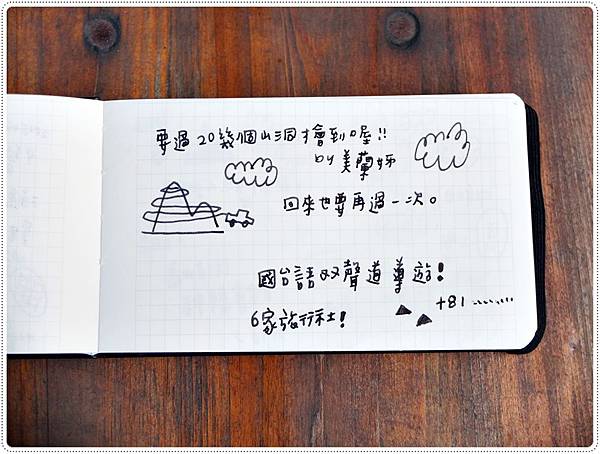 要過20幾個山洞才會到喔!!
by 美蘭姊
回來也要再過一次。
國台語双聲道導遊!
+81 .........
6家旅行社!